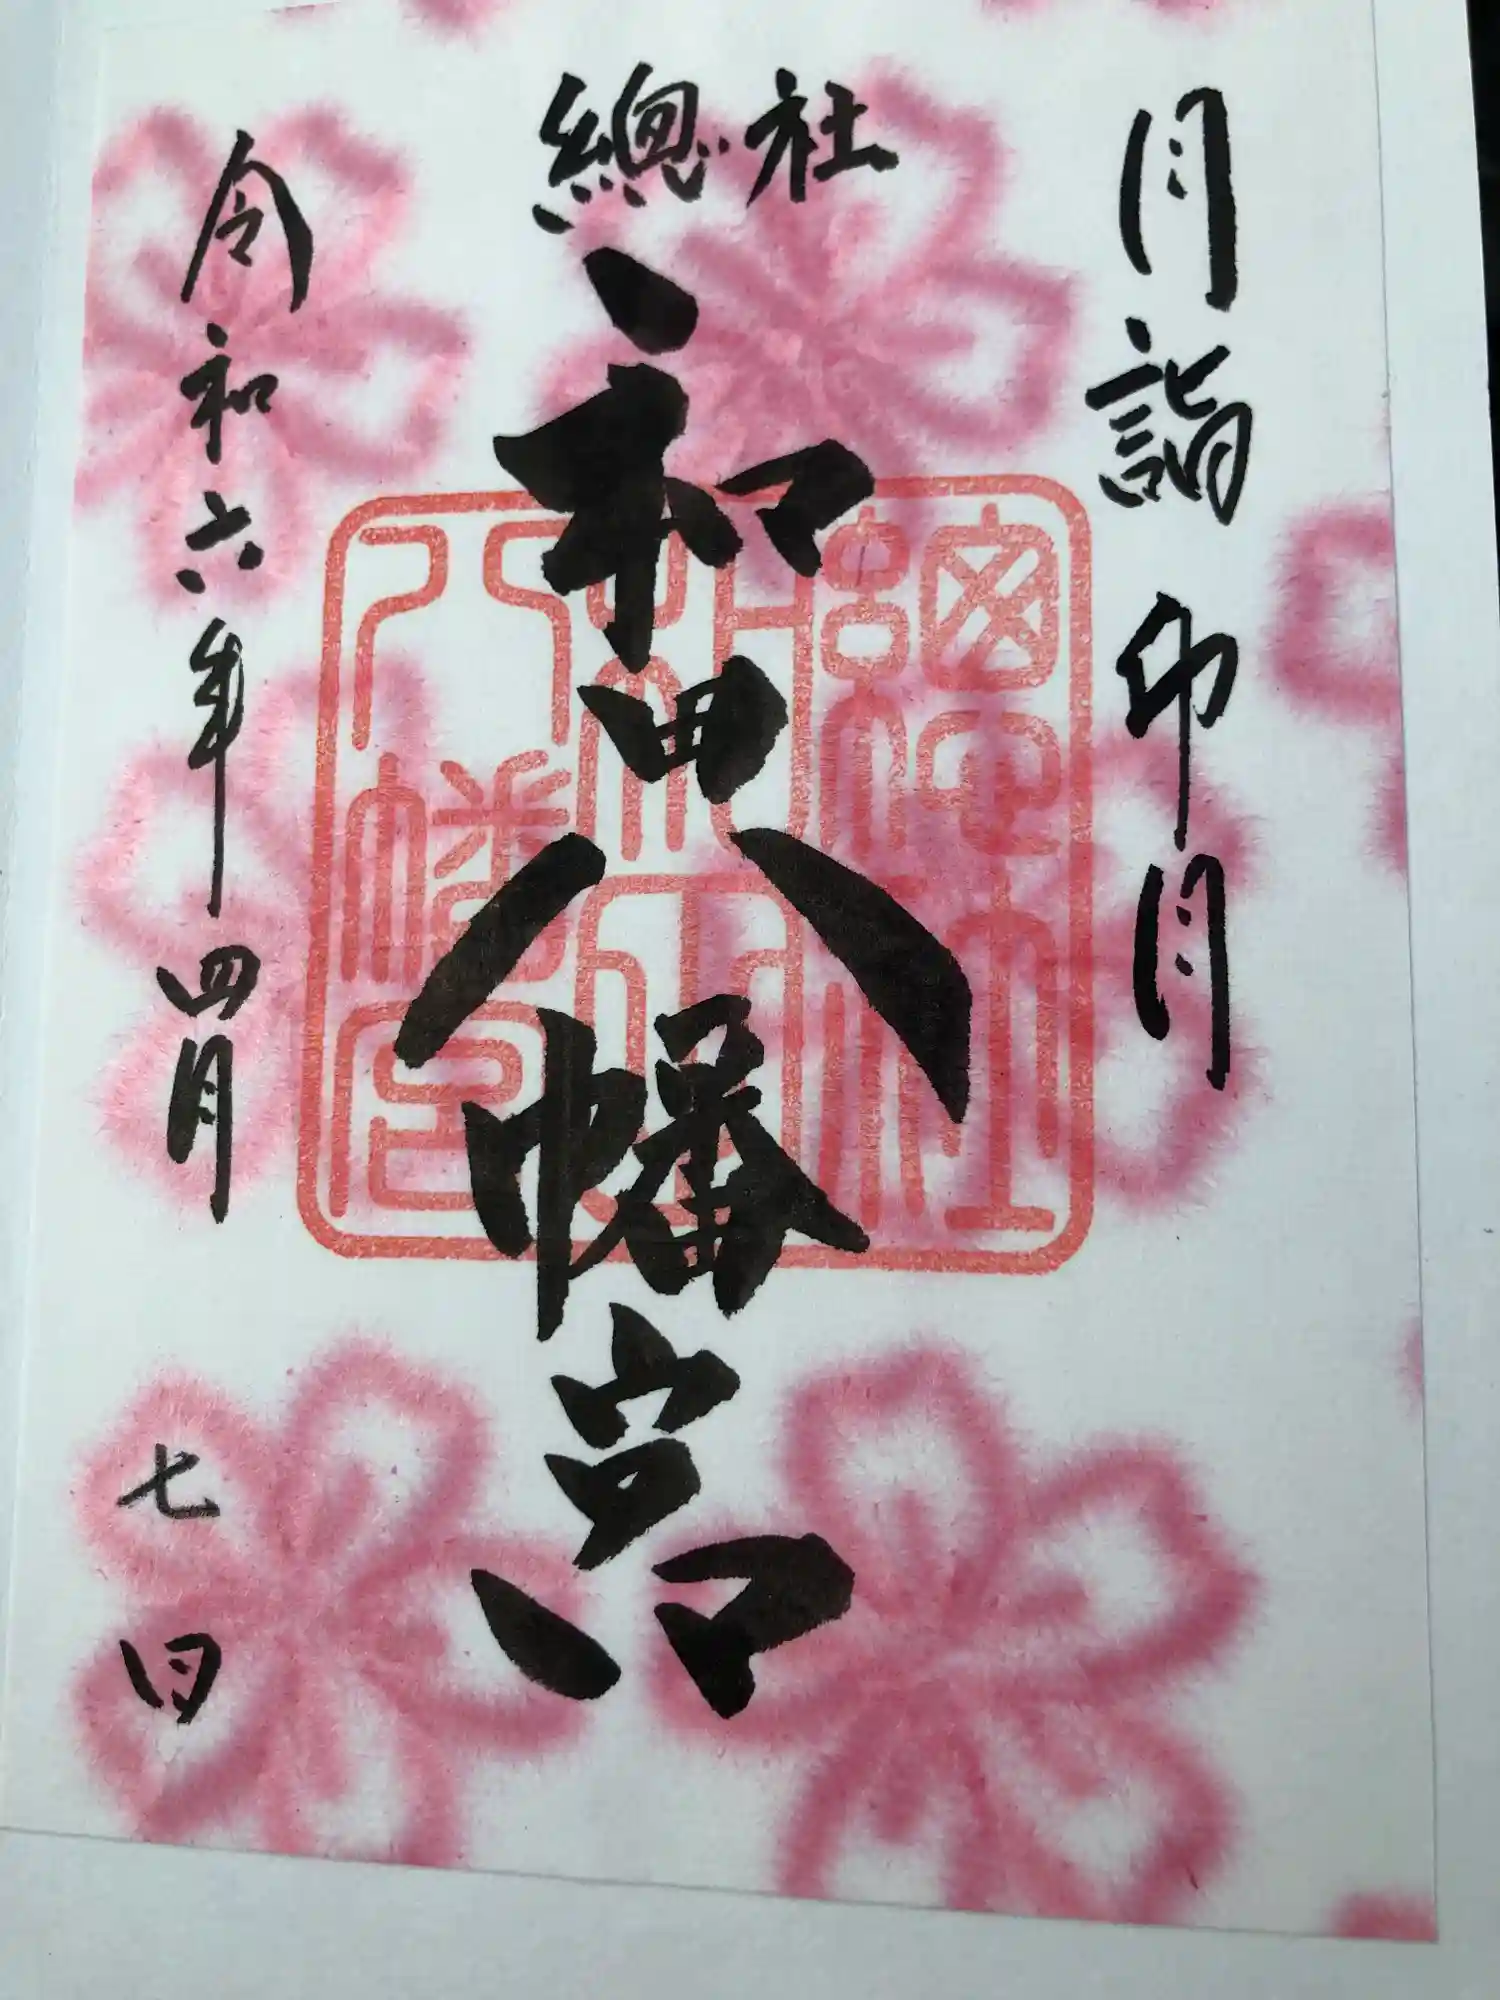 月詣 卯月
總社
和田八幡宮
令和六年四月七日
總社
和田
八幡宮